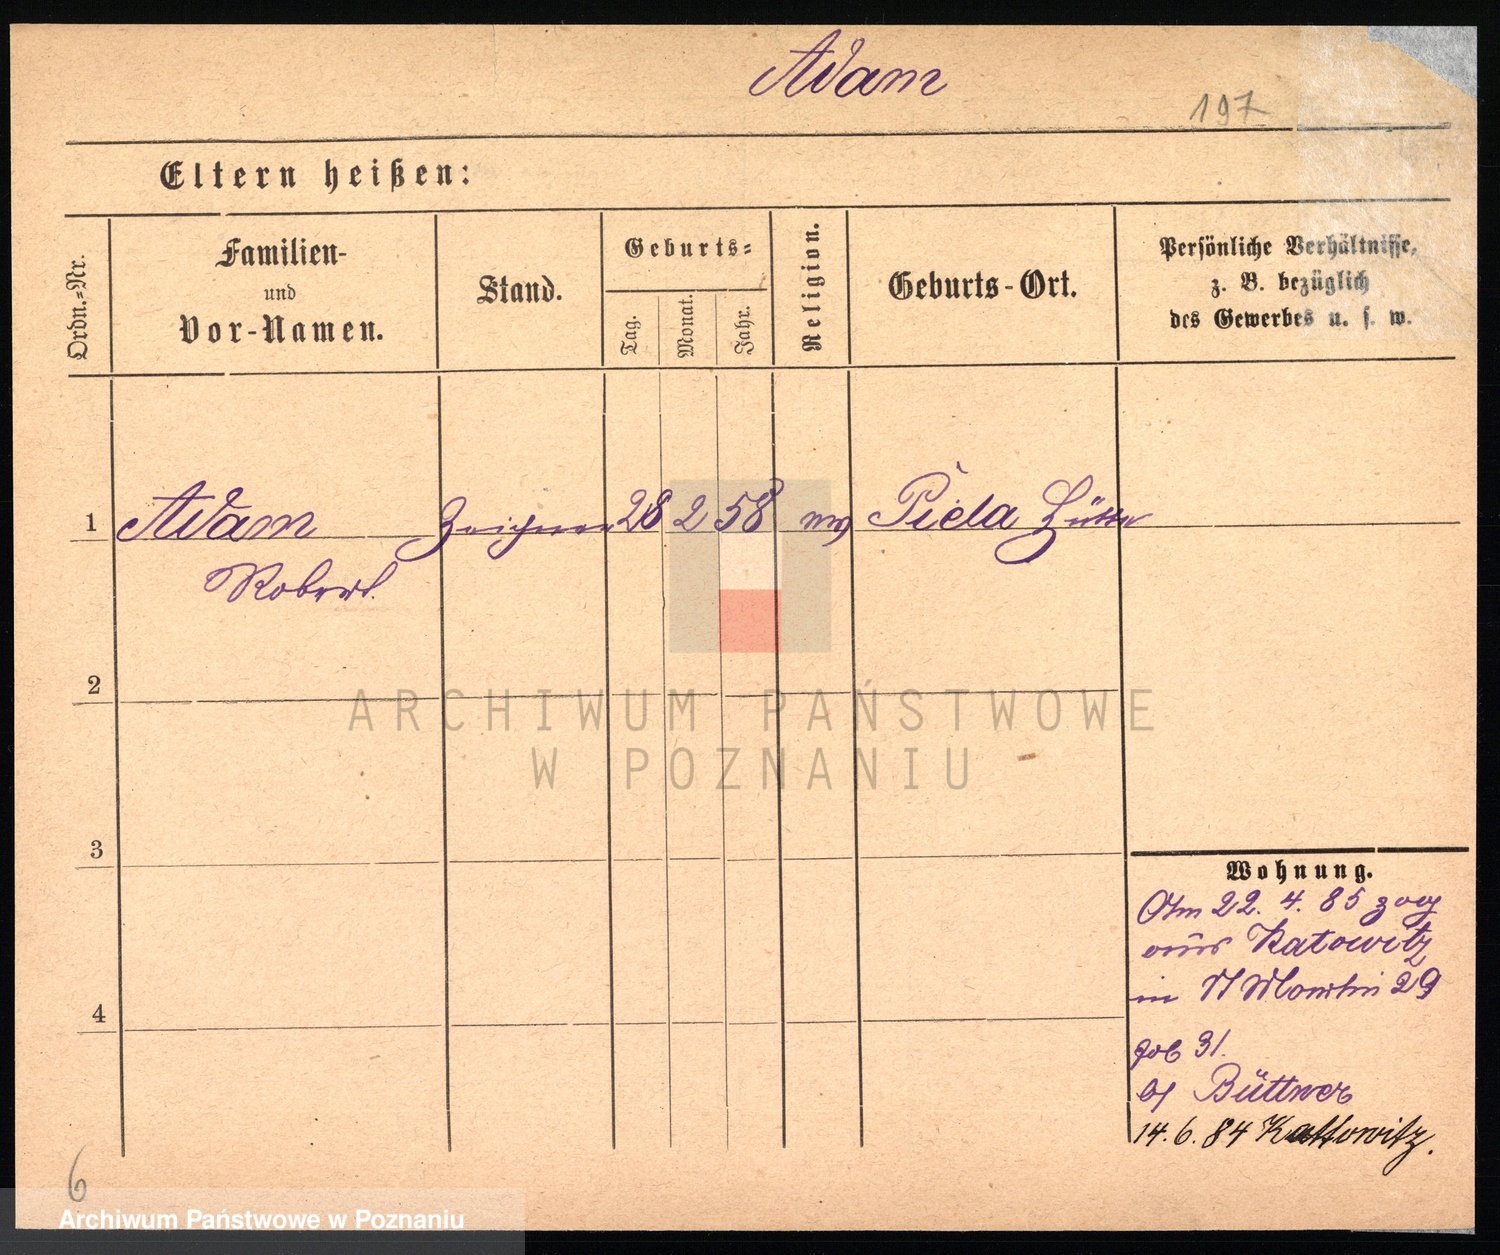 Adam
197
Eltern heißen:
Ordn.-Nr.
Familien-
und
Vor-Namen.
Stand.
Geburts-
Tag.
Monat.
Jahr.
Religion.
Geburts-Ort.
Persönliche Verhältnisse,
z. B. bezüglich
des Gewerbes u. s. w.
1
Adam
Zeichner
28
2
58
Piela Hütte
Robert.
2
3
4
Wohnung.
Am 22. 4. 85 zog
aus Katowitz
in 29
geb 31.
bei Büttner
14. 6. 84 Kattowitz.
6
ARCHIWUM PAŃSTWOWE
W POZNANIU
Archiwum Państwowe w Poznaniu